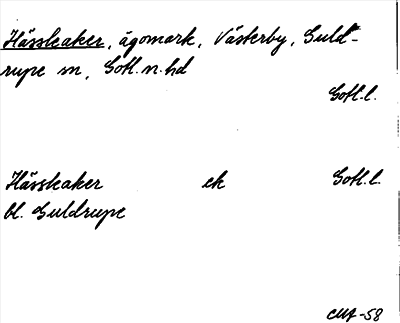 Hässleaker, ägomark, Västerby, Guld-
rupe sn, Gotl. n. hd
Gotl. l.
Hässleaker ek Gotl. l.
bl. Guldrupe
CMJ-58